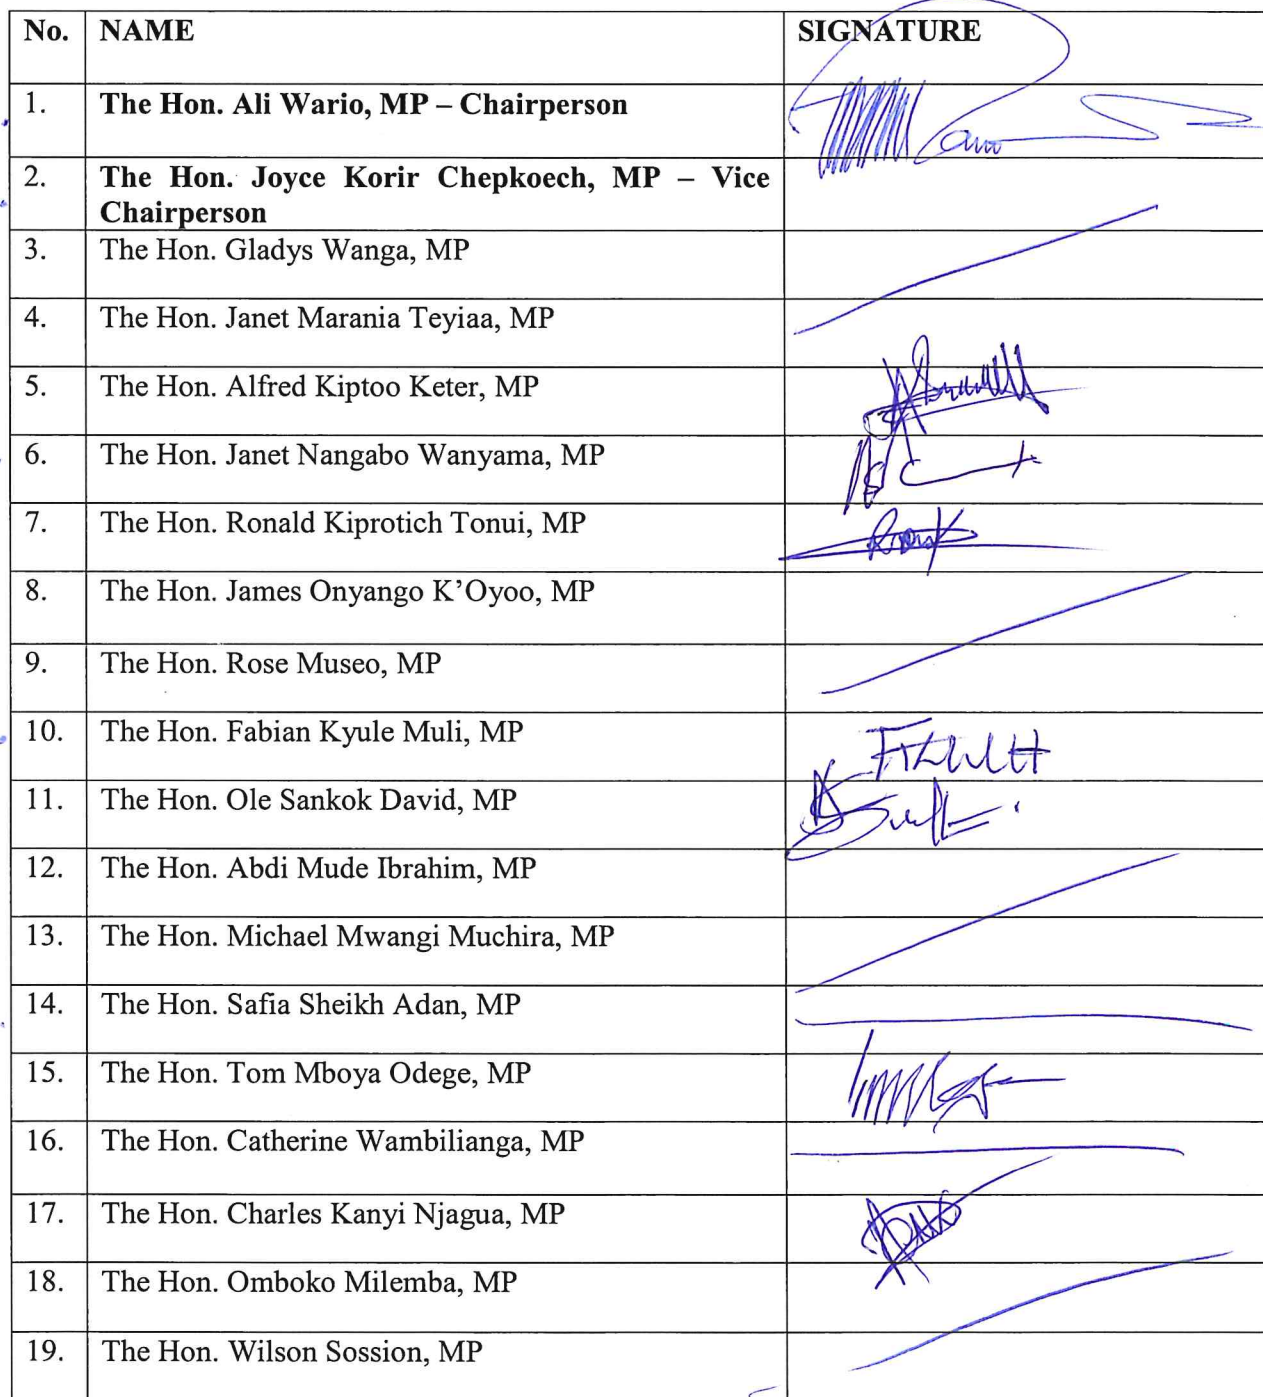 No. NAME SIGNATURE
1. The Hon. Ali Wario, MP – Chairperson
2. The Hon. Joyce Korir Chepkoech, MP – Vice
Chairperson
3. The Hon. Gladys Wanga, MP
4. The Hon. Janet Marania Teyiaa, MP
5. The Hon. Alfred Kiptoo Keter, MP
6. The Hon. Janet Nangabo Wanyama, MP
7. The Hon. Ronald Kiprotich Tonui, MP
8. The Hon. James Onyango K’Oyoo, MP
9. The Hon. Rose Museo, MP
10. The Hon. Fabian Kyule Muli, MP
11. The Hon. Ole Sankok David, MP
12. The Hon. Abdi Mude Ibrahim, MP
13. The Hon. Michael Mwangi Muchira, MP
14. The Hon. Safia Sheikh Adan, MP
15. The Hon. Tom Mboya Odege, MP
16. The Hon. Catherine Wambilianga, MP
17. The Hon. Charles Kanyi Njagua, MP
18. The Hon. Omboko Milemba, MP
19. The Hon. Wilson Sossion, MP